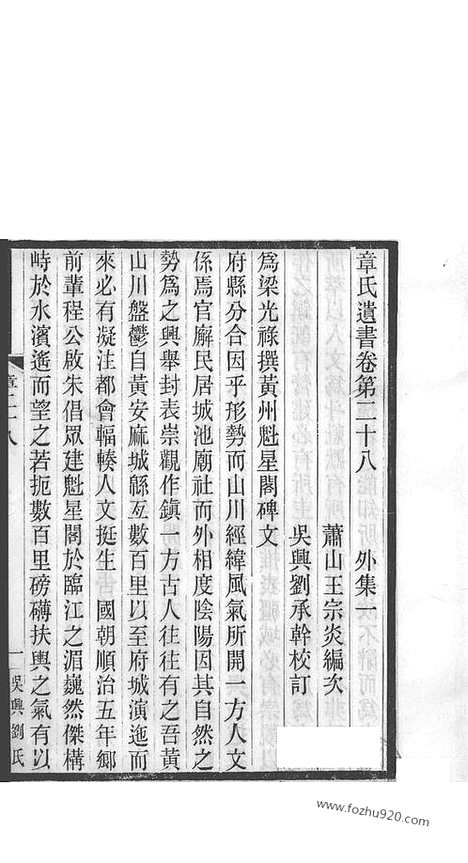 章氏遺書卷第二十八　外集一
蕭山王宗炎編次
吳興劉承幹校訂
爲梁光祿撰黃州魁星閣碑文
府縣分合因乎形勢而山川經緯風氣所開一方人文
係焉官廨民居城池廟社而外相度陰陽因其自然之
勢爲之興舉封表崇觀作鎮一方古人往往有之吾黃
山川盤鬱自黃安麻城緜亙數百里以至府城演迤而
來必有凝注都會輻輳人文挺生　國朝順治五年鄉
前輩程公啟朱倡眾建魁星閣於臨江之湄巍然傑構
峙於水濱遙而望之若扼數百里磅礴扶輿之氣有以
章二十八
一
吳興劉氏
www.fozhu920.com